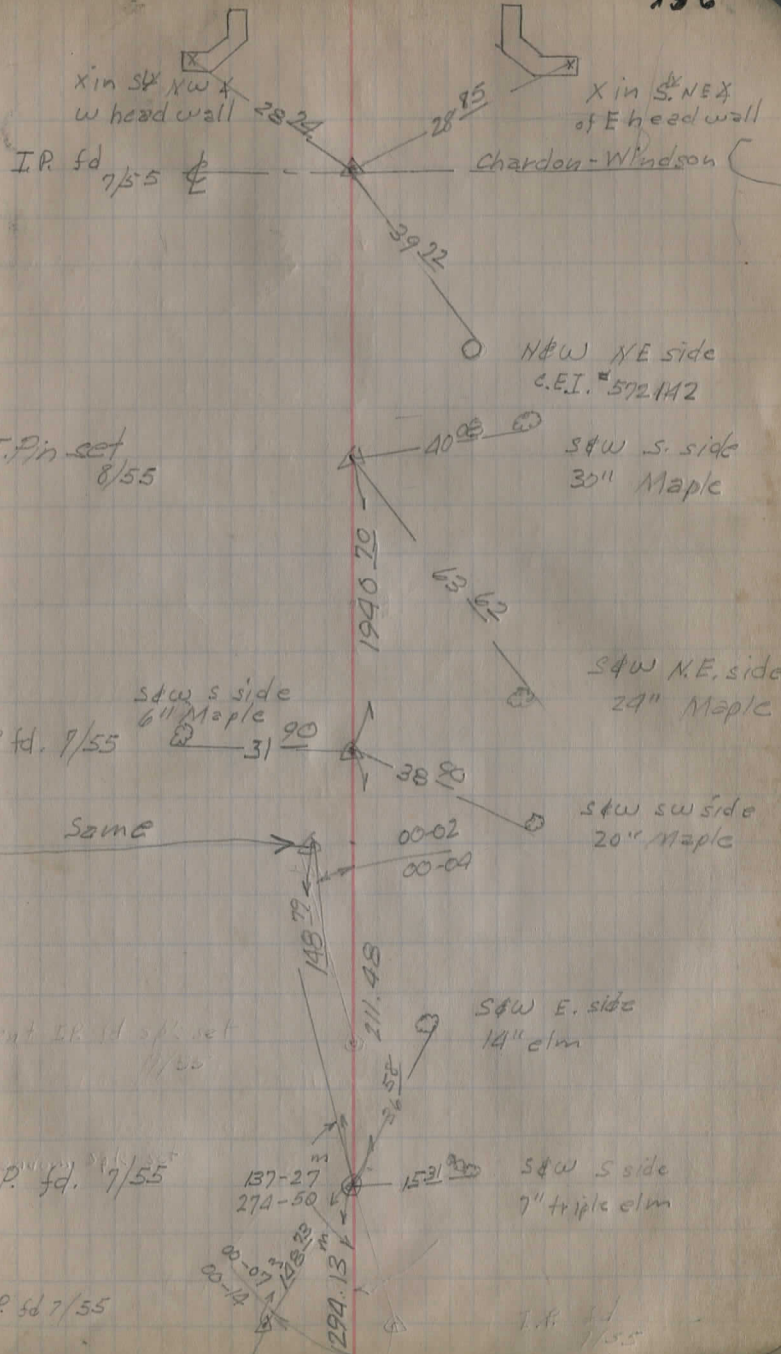 X in S.W NW ∠
W head wall
28 24
28 85
X in S. NE ∠
of E head wall
I.P. fd
7/55
℄
Chardon-Windson
39 22
N&W NE side
C.E.I. #572142
Pin set
8/55
40 08
S&W S. side
30" Maple
1940 70
63 62
S&W N.E. side
24" Maple
S&W S side
6" Maple
fd. 7/55
31 90
38 90
S&W SW side
20" Maple
Same
00-02
00-04
148 79
211.48
S&W E. side
14" elm
36 58
P. fd. 7/55
137-27 3
274-50
15 31
S&W S side
7" triple elm
00-07 3
00-14
148 23
294.13
P. fd 7/55